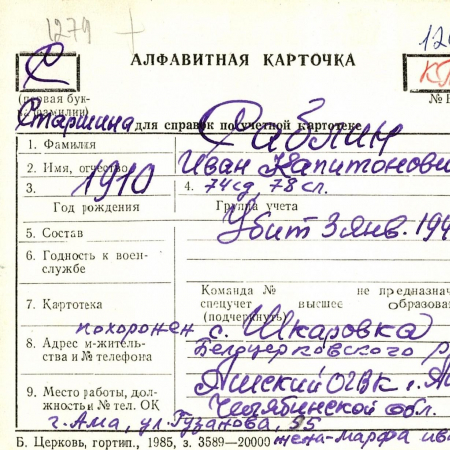 1279
120
С
АЛФАВИТНАЯ КАРТОЧКА
(первая бук-
ва фамилии)
№ В
Старшина для справок по учетной картотеке
1. Фамилия Саблин
2. Имя, отчество Иван Капитонови
3. 1910 4. 74 сд, 78 сп.
Год рождения Группа учета
5. Состав Убит 3 янв. 194
6. Годность к воен-
службе
Команда № не предназнач
7. Картотека спецучет высшее образова
(подчеркнуть)
похоронен с. Шкаровка
8. Адрес м-житель-
ства и № телефона Белоцерковского р
9. Место работы, дол-
жность и № тел. ОК Ашский ОГВК г. А
Челябинской обл.
г. Аша, ул. Гузанова, 35
Б. Церковь, гортип., 1985, з. 3589—20000 жена-Марфа ива